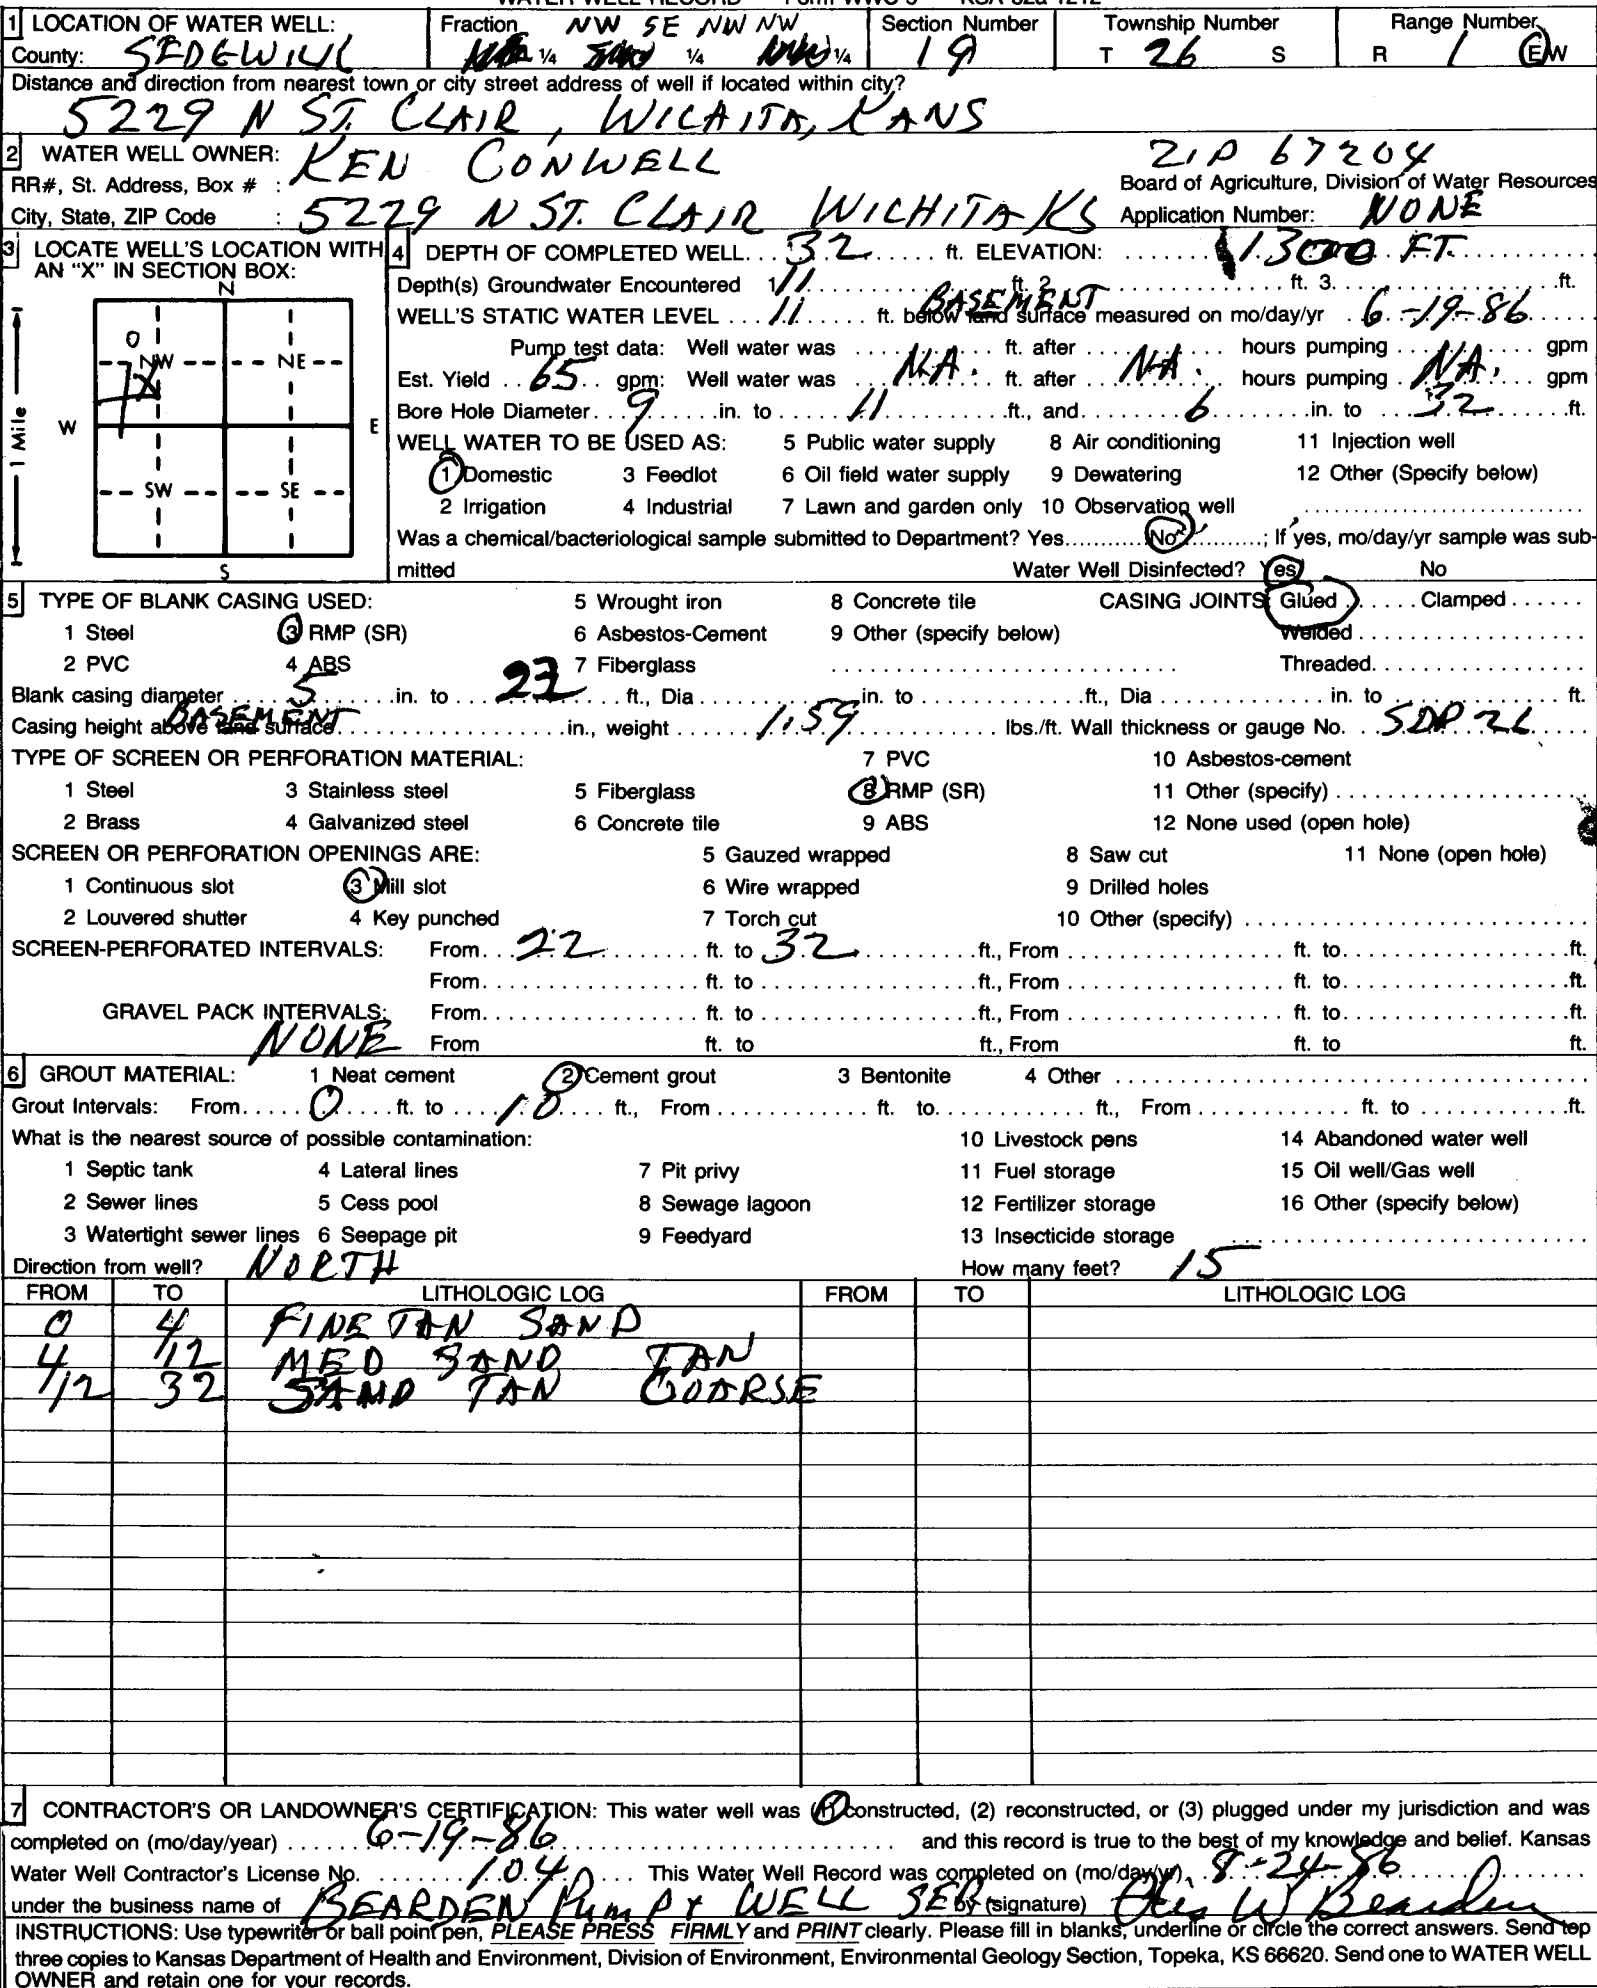 WATER WELL RECORD Form WWC-5 KSA 82a-1212
1 LOCATION OF WATER WELL: Fraction NW SE NW NW Section Number Township Number Range Number
County: SEDGWICK ¼ ¼ ¼ 19 T 26 S R 1 E/W
Distance and direction from nearest town or city street address of well if located within city?
5229 N ST. CLAIR, WICHITA, KANS
2 WATER WELL OWNER: KEN CONWELL ZIP 67204
RR#, St. Address, Box # : Board of Agriculture, Division of Water Resources
City, State, ZIP Code : 5229 N ST. CLAIR WICHITA KS Application Number: NONE
3 LOCATE WELL'S LOCATION WITH AN "X" IN SECTION BOX:
N
O
NW NE
X
W E
SW SE
S
1 Mile
4 DEPTH OF COMPLETED WELL... 32 ... ft. ELEVATION: ... 1300 FT.
Depth(s) Groundwater Encountered 1 11 ... ft. 2 ... ft. 3 ... ft.
WELL'S STATIC WATER LEVEL ... 11 ... ft. below land surface BASEMENT measured on mo/day/yr 6-19-86
Pump test data: Well water was ... ft. after ... hours pumping ... gpm
Est. Yield .. 65 .. gpm: Well water was ... NA. ft. after ... NA. hours pumping ... NA. gpm
Bore Hole Diameter... 9 ...in. to ... 11 ...ft., and... 6 ...in. to ... 32 ...ft.
WELL WATER TO BE USED AS: 5 Public water supply 8 Air conditioning 11 Injection well
1 Domestic 3 Feedlot 6 Oil field water supply 9 Dewatering 12 Other (Specify below)
2 Irrigation 4 Industrial 7 Lawn and garden only 10 Observation well
Was a chemical/bacteriological sample submitted to Department? Yes...No...; If yes, mo/day/yr sample was sub-
mitted Water Well Disinfected? Yes No
5 TYPE OF BLANK CASING USED: 5 Wrought iron 8 Concrete tile CASING JOINTS: Glued ... Clamped ...
1 Steel 3 RMP (SR) 6 Asbestos-Cement 9 Other (specify below) Welded ...
2 PVC 4 ABS 7 Fiberglass ... Threaded...
Blank casing diameter ... 5 ...in. to ... 22 ... ft., Dia ...in. to ...ft., Dia ... in. to ... ft.
Casing height above land surface BASEMENT ...in., weight ... 1.59 ... lbs./ft. Wall thickness or gauge No. ... SDR 26
TYPE OF SCREEN OR PERFORATION MATERIAL: 7 PVC 10 Asbestos-cement
1 Steel 3 Stainless steel 5 Fiberglass 8 RMP (SR) 11 Other (specify) ...
2 Brass 4 Galvanized steel 6 Concrete tile 9 ABS 12 None used (open hole)
SCREEN OR PERFORATION OPENINGS ARE: 5 Gauzed wrapped 8 Saw cut 11 None (open hole)
1 Continuous slot 3 Mill slot 6 Wire wrapped 9 Drilled holes
2 Louvered shutter 4 Key punched 7 Torch cut 10 Other (specify) ...
SCREEN-PERFORATED INTERVALS: From... 22 ... ft. to 32 ...ft., From ... ft. to...ft.
From... ft. to ...ft., From ... ft. to...ft.
GRAVEL PACK INTERVALS: From... ft. to ...ft., From ... ft. to...ft.
NONE From ft. to ft., From ft. to ft.
6 GROUT MATERIAL: 1 Neat cement 2 Cement grout 3 Bentonite 4 Other ...
Grout Intervals: From... 0 ...ft. to ... 10 ... ft., From ... ft. to... ft., From ... ft. to ...ft.
What is the nearest source of possible contamination: 10 Livestock pens 14 Abandoned water well
1 Septic tank 4 Lateral lines 7 Pit privy 11 Fuel storage 15 Oil well/Gas well
2 Sewer lines 5 Cess pool 8 Sewage lagoon 12 Fertilizer storage 16 Other (specify below)
3 Watertight sewer lines 6 Seepage pit 9 Feedyard 13 Insecticide storage ...
Direction from well? NORTH How many feet? 15
FROM TO LITHOLOGIC LOG FROM TO LITHOLOGIC LOG
0 4 FINE TAN SAND
4 12 MED SAND TAN
12 32 SAND TAN COARSE
7 CONTRACTOR'S OR LANDOWNER'S CERTIFICATION: This water well was (1) constructed, (2) reconstructed, or (3) plugged under my jurisdiction and was
completed on (mo/day/year) ... 6-19-86 ... and this record is true to the best of my knowledge and belief. Kansas
Water Well Contractor's License No. ... 104 ... This Water Well Record was completed on (mo/day/yr) 8-24-86
under the business name of BEARDEN PUMP & WELL SER by (signature) Otis W Bearden
INSTRUCTIONS: Use typewriter or ball point pen, PLEASE PRESS FIRMLY and PRINT clearly. Please fill in blanks, underline or circle the correct answers. Send top
three copies to Kansas Department of Health and Environment, Division of Environment, Environmental Geology Section, Topeka, KS 66620. Send one to WATER WELL
OWNER and retain one for your records.